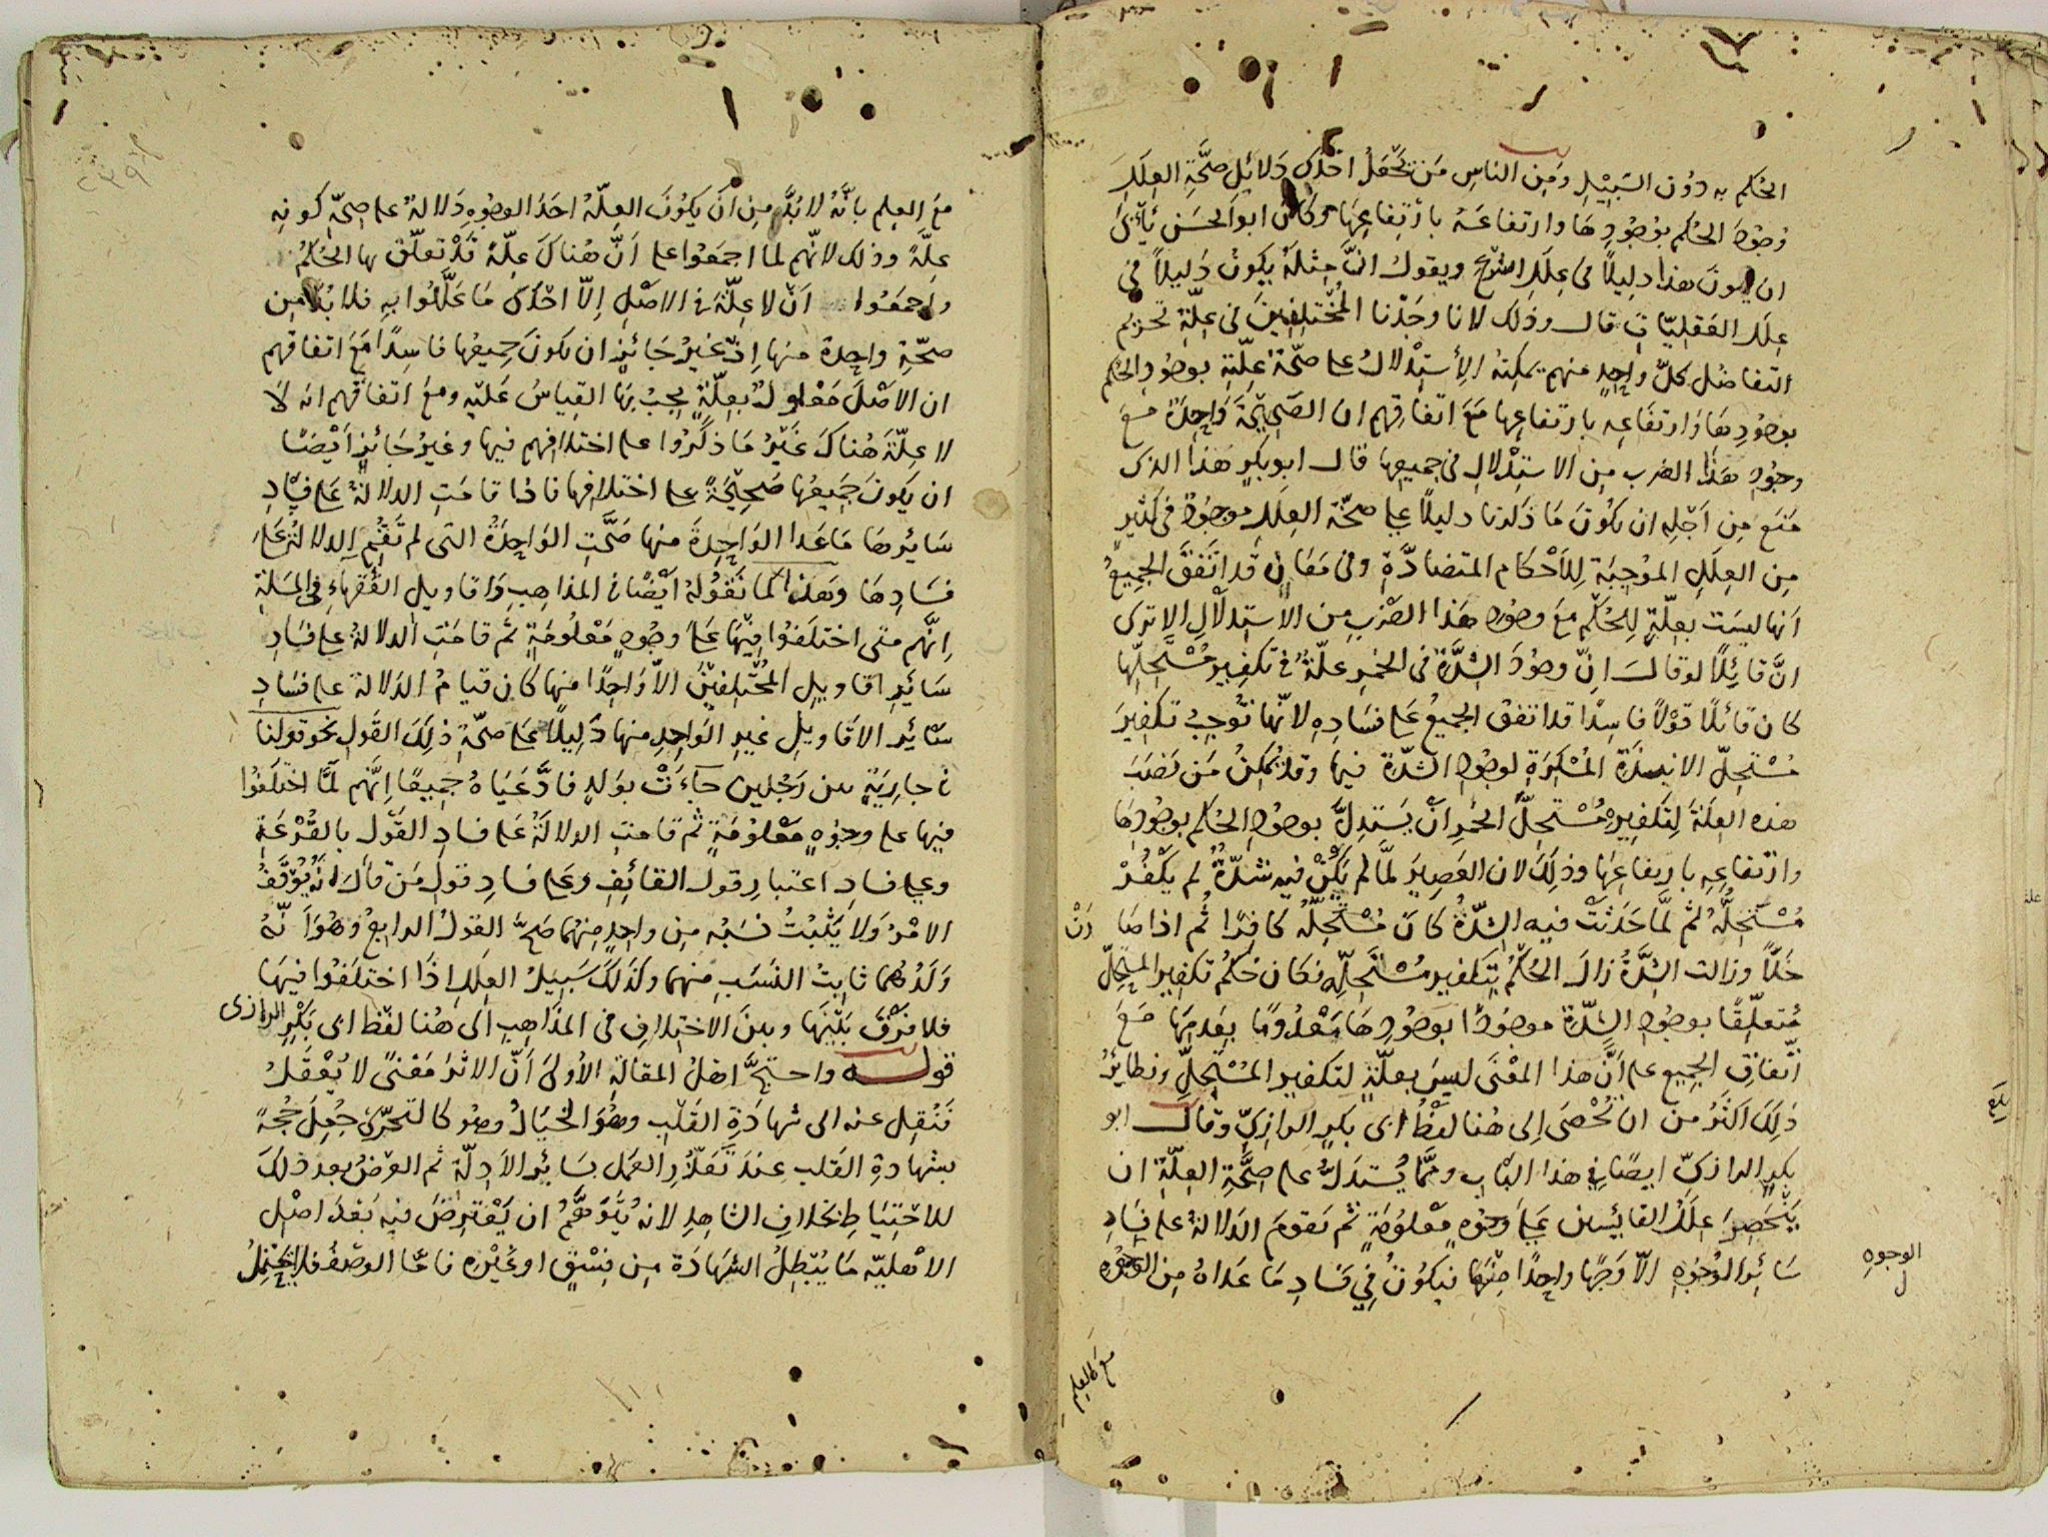 الحُكم به دوُن السَّبيْلِ ومَن الناسِ مَن يَجْعَلُ احَدَى دَلائلِ صحَّةِ العِلَلِ
وُجُودَ الحُكم بوُجُودِ هَا وارتفاعَهُ بارْتِفاعِهَا وكان ابوالحسَن يَأبَى
ان يكونَ هذا دليلًا فى عِلَلِ الشرْع ويقولُ انَّ مِثلَهُ يكونُ دَليلاً فى
عِلَلِ العَقلِيّاتِ قال وذلك لانا وجَدْنا المُخْتلِفِينَ فى عِلّةِ تحريم
التفاضُل كلُّ واحِدٍ منهم يمكِنهُ الأِستِدْلالُ على صحّة عِلّتِهِ بوجُودِ الحُكم
بوجُودِهَا وَارتفَاعِه بارتفاعِها مَعَ اتفاقِهم ان الصَحِيحَةَ وَاحِدَةٌ مَعَ
وجُودِ هَذا الضربِ مِن الاستِدْلالِ فى جميعِها قال ابوبكرٍ هذا الذى
مَنَع مِن اَجْلِه ان يكُونَ مَا ذكَرنا دليلًا على صحَّة العِلَلِ موجوُدٌ فى كثيرٍ
مِن العِلَلِ الموُجِبَة لِلاَحْكام المتضادَّةِ وفى مَعَانٍ قد اتَفقَ الجميعُ
اَنها ليسَت بعِلّةٍ لِلحُكْمِ مَعَ وجُودِ هذا الضَرْبِ مِن الاستدلالِ الا ترى
انَّ قائِلًا لوقالَ اِنّ وجُودَ الشِدَّةِ فى الخمرِ علّةٌ فى تكفيرِ مُسْتَحِلّها
كان قائلًا قوْلاً فاسِدًا قد اتفق الجميعُ عَلى فسَادِهِ لانّها تُوجِبُ تكفيرَ
مُسْتحِلّ الانبِذَةِ المُسْكِرَةِ لوجُودِ الشدّة فيها وقد يُمكِنُ مَن نصَبَ
هذه العِلّةَ لِتكفِيرِ مُسْتحِلِّ الخمرِ اَنْ يَستدِلَّ بوجُودِ الحُكم بوُجودِهَا
وارْتفاعِهِ بارتفاعِهَا وذلِكَ لان العَصِيرَ لمَّا لم يَكنْ فيه شِدَّةٌ لم يكْفُرْ
مُسْتحِلُّهُ ثم لمَّا حَدَثَتْ فيه الشِدّةُ كانَ مُسْتحِلُّه كافِرًا ثُم اذا صَا
رَتْ
خَلًّا وزالت الشِدَّةُ زالَ الحُكْمُ بِتكفيرِ مُسْتَحِلِّهِ فكان حُكمُ تكفيرِ المستحِلّ
مُتعلِّقًا بوجُودِ الشِدّةِ موجوُدًا بوجُودِهَا مَعْدُومًا بعَدمِها مَعَ
اتّفاقِ الجميع على اَنَّ هذا المعْنَى ليسَ بعلّةٍ لتكفيرِ المُسْتحِلِّ ونظايرُ
ذلِكَ اكثرُ من ان تُحْصَى اِلى هُنا لفظُ ابى بَكرٍ الرازِىّ وقال ابو
بكرٍ الرازىّ ايضًا فى هذا البابِ وممَّا يُستدَلُّ على صِحَّةِ العِلّةِ ان
يَنْحَصِرَ عِلَلُ القائسِين عَلى وجُوهٍ مَعْلوُمَةٍ ثم تقومَ الدلالةُ على فسادِ
سَائرِ الوُجُوهِ الّا وَجْهًا واحِدًا مِنْهَا فيكُونُ فى فسَادِ مَا عَداهُ مِن الوجُوهِ
الوجوه
ل
بلغ
مع العلم
مَعَ العِلِم بانَّهُ لا بُدَّ مِن اَن يَكونَ العِلّةُ احَدَ الوجُوهِ دَلالةٌ على صِحّةِ كونِه
عِلّةً وذلك لانّهم لما اجمَعُوا على اَنّ هُناكَ عِلّةً قَدْ تعلّق بها الحُكمُ
واَجمَعُوا اَنْ لا عِلّةَ فى الاصْلِ اِلّا احَدَى مَا عَلَّلُوا بهِ فلا بُدَّ مِن
صحّةِ واحِدَةٍ منها اِذ غيرُ جَائزٍ ان يكونَ جميعُها فاسِدًا مَعَ اتفاقهم
ان الاصْلَ مَعْلُولٌ بعِلّةٍ يجبُ بِهَا القِياسُ عَليْه ومعَ اتفاقهم انه لا
لا عِلّةَ هُناكَ غَيْرُ مَا ذكَرُوا على اختلافِهم فيها وغيرُ جَائزٍ اَيْضًا
ان يَكونَ جَميعُها صَحِيْحَةً على اختلافِها فاذا قامَتِ الدلالةُ عَلى فسَادِ
سَائرِهَا مَا عَدا الوَاحِدَةَ منها صَحَّتِ الوَاحِدَةُ التى لم تَقُمِ الدلالةُ عَلى
فسَادِهَا وَهَذا كما نَقوُلهُ اَيْضًا فى المذاهِبِ وَاقاويلِ الفُقهاءِ فى المسَلةِ
اِنّهم متى اختلَفُوا فِيْهَا عَلى وجُوهٍ مَعْلُومَةٍ ثم قامَتِ الدلالةُ على فسَادِ
سَائرِ اقاوِيلِ المُخْتلِفِيْنَ الّا وَاحِدًا منها كان قيامُ الدَلالة على فسَادِ
سَائرِ الاقاويلِ غيرِ الوَاحِدِ منها دَلِيلًا عَلى صحّةِ ذلِكَ القَولِ نحو قولنا
فى جارِيَةٍ بين رَجُلين جَآءَتْ بوَلدٍ فادَّعَيَاهُ جَميعًا اِنّهم لَمَّا اختلفُوا
فيها على وجُوهٍ مَعْلُومَةٍ ثُم قامت الدلالَةُ عَلى فسادِ القَولِ بالقُرْعَةِ
وعلى فسادِ اعتبارِ قولِ القائفِ وعَلى فسادِ قولِ مَن قالَ انّه يُوْقَفُ
الامْرُ وَلا يَثْبُتُ نَسَبُه مِن واحِدٍ مِنْهُما صَحّ القولُ الرابعُ وهُوَ اَنّهُ
وَلَدُهُما ثابِتُ النسَبِ منهما وكذلكَ سَبيلُ العِلَلِ اِذا اختلَفوا فيهَا
فلا فَرْقَ بَيْنَها وبينَ الاختِلافِ فى المذَاهِب الى هُنا لفظ ابى بَكْرٍ الرازى
قولـــه واحتجَّ اهلُ المقالةِ الأُولى اَنّ الاثرَ مَعْنًى لا يُعْقَلُ
فَنُقِل عنه الى شهادَةِ القَلْبِ وهُوَ الخيَالُ وهُو كالتحَرِّى جُعِلَ حُجةً
بشهادةِ القَلب عِندَ تَعَذُّرِ العَمَل بسَائر الاَدِلّة ثم العَرْضُ بعد ذلكَ
للاحْتِيَاطِ بخلافِ الشاهِدِ لانهُ يُتوَهَّمُ ان يَعْترِضَ فيه بَعْدَ اَصْلِ
الاهْليّه مَا يُبْطِلُ الشهَادَةَ مِن فِسْقٍ او غَيْرِه فامّا الوصْفُ فلا يحْتملُ